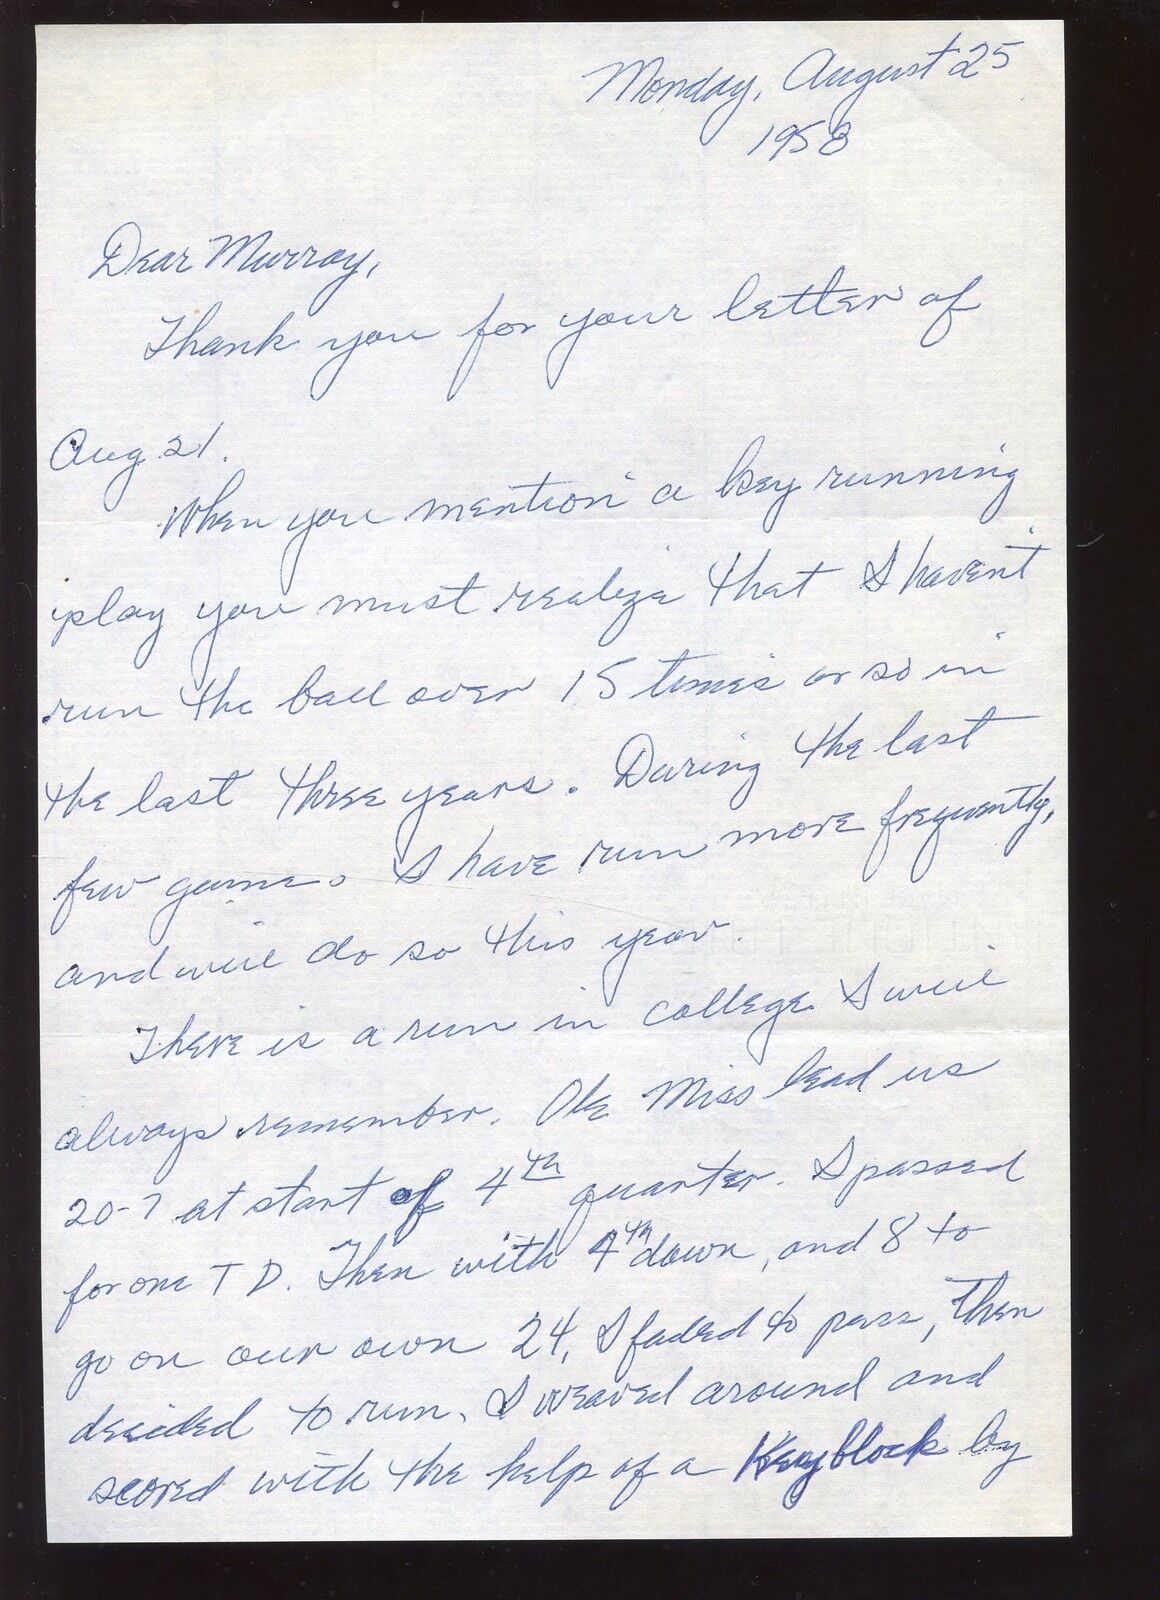 Monday, August 25
1958
Dear Murray,
Thank you for your letter of
Aug 21.
When you mention a key running
play you must realize that I haven't
run the ball over 15 times or so in
the last three years. During the last
few games I have run more frequently,
and will do so this year.
There is a run in college I will
always remember. Ole Miss lead us
20-7 at start of 4th quarter. I passed
for one TD. Then with 4th down, and 8 to
go on our own 24, I faded to pass, then
decided to run. I weaved around and
scored with the help of a Key block by